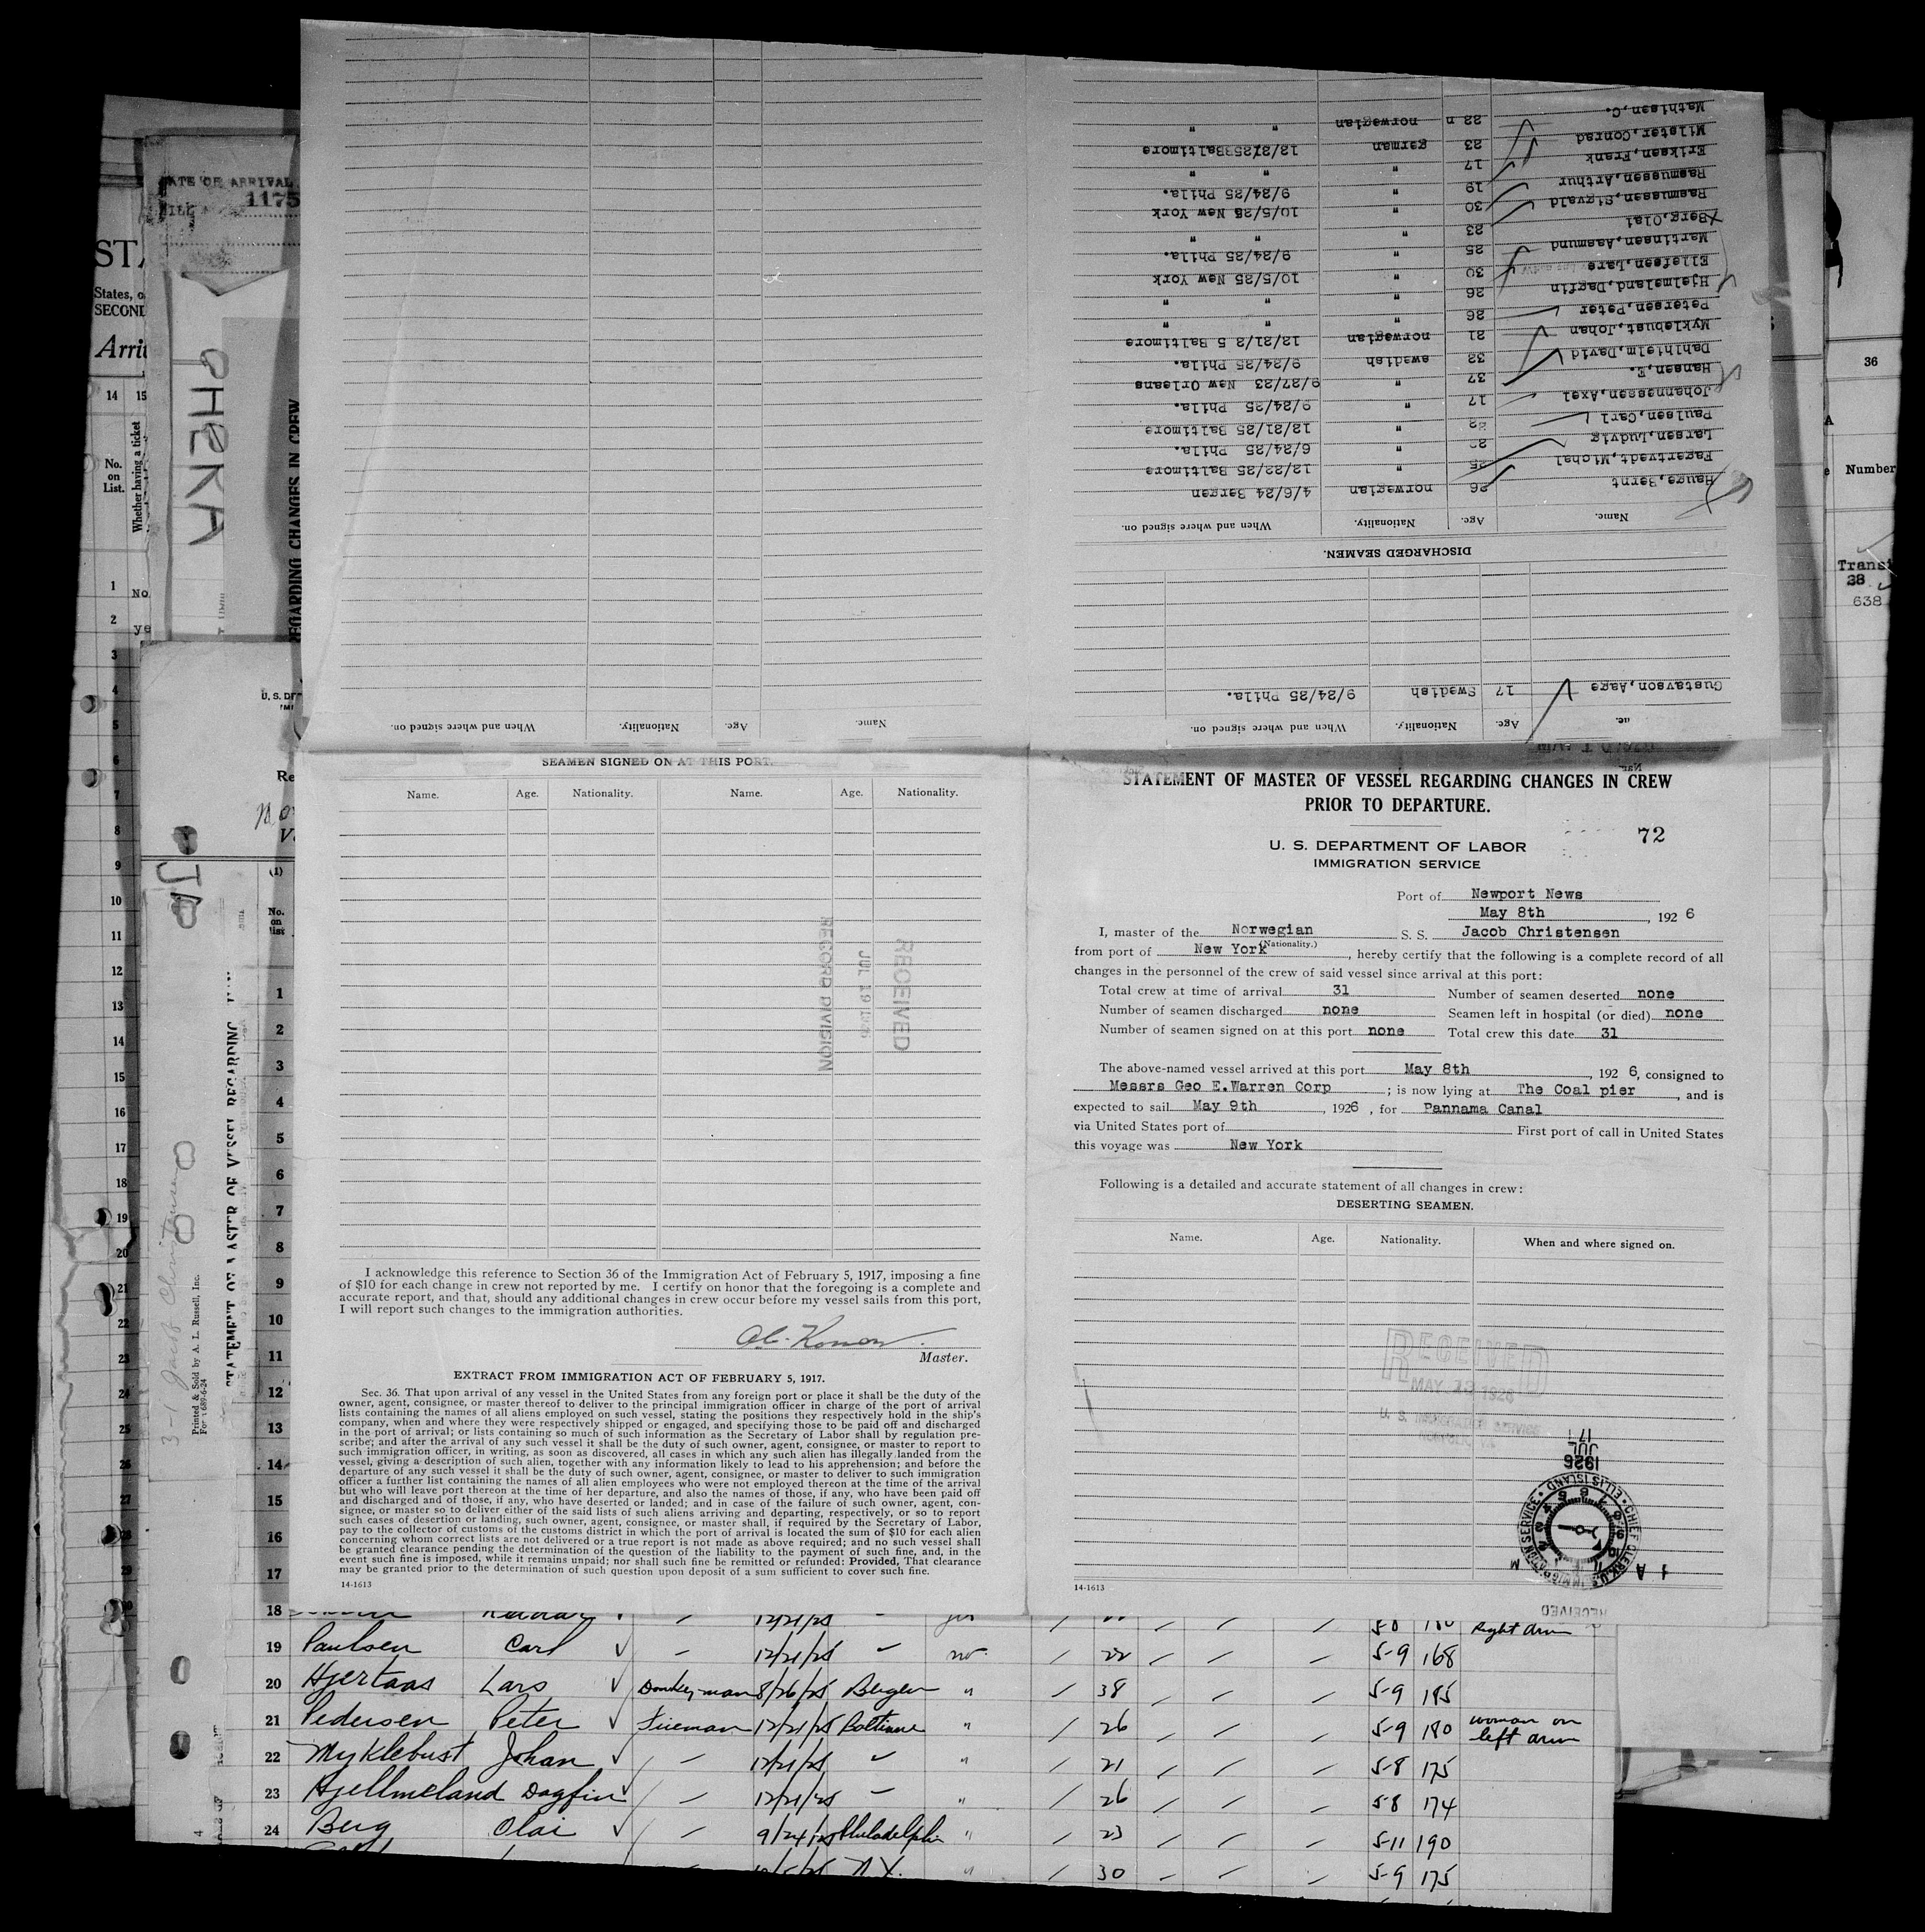 DATE OF ARRIVAL
1175
STA
States, o
SECOND
Arri
14 15
No.
on
List.
Whether having a ticket
PHEKA
REGARDING CHANGES IN CREW
36
Number
Trans
38
638
Mathisen,C. 22 n norwegian " "
Milster,Conrad 23 german 12/21/25 Baltimore
Eriksen,Frank 17 " " "
Rasmussen,Arthur 19 " 9/24/25 Phila.
Rasmussen,Sigvald 30 " 10/5/25 New York
Berg,Olai 23 " " "
Martinsen,Aasmund 25 " 9/24/25 Phila.
Ellefsen,Lars 30 " 10/5/25 New York
Hjelmeland,Dagfin 26 " " "
Petersen,Peter 26 " " "
Myklebust,Johan 21 norwegian 12/21/2 5 Baltimore
Dahlhielm,David 32 swedish 9/24/25 Phila.
Hansen,E. 37 " 9/27/23 New Orleans
Johannessen,Axel 17 " 9/24/25 Phila.
Paulsen,Carl 22 " 12/21/25 Baltimore
Larsen,Ludvig " 6/24/25 Phila.
Fagertvedt,Michal 25 " 12/22/25 Baltimore
Hauge,Bernt 26 norwegian 4/6/24 Bergen
Name. Age. Nationality. When and where signed on.
DISCHARGED SEAMEN.
Gustavson,Aage 17 Swedish 9/24/25 Phila.
Age. Nationality. When and where signed on.
Name. Age. Nationality. When and where signed on.
SEAMEN SIGNED ON AT THIS PORT.
Name. Age. Nationality. Name. Age. Nationality.
RECEIVED
JUL 19 1926
RECORD DIVISION
I acknowledge this reference to Section 36 of the Immigration Act of February 5, 1917, imposing a fine
of $10 for each change in crew not reported by me. I certify on honor that the foregoing is a complete and
accurate report, and that, should any additional changes in crew occur before my vessel sails from this port,
I will report such changes to the immigration authorities.
Master.
EXTRACT FROM IMMIGRATION ACT OF FEBRUARY 5, 1917.
Sec. 36. That upon arrival of any vessel in the United States from any foreign port or place it shall be the duty of the
owner, agent, consignee, or master thereof to deliver to the principal immigration officer in charge of the port of arrival
lists containing the names of all aliens employed on such vessel, stating the positions they respectively hold in the ship's
company, when and where they were respectively shipped or engaged, and specifying those to be paid off and discharged
in the port of arrival; or lists containing so much of such information as the Secretary of Labor shall by regulation pre-
scribe; and after the arrival of any such vessel it shall be the duty of such owner, agent, consignee, or master to report to
such immigration officer, in writing, as soon as discovered, all cases in which any such alien has illegally landed from the
vessel, giving a description of such alien, together with any information likely to lead to his apprehension; and before the
departure of any such vessel it shall be the duty of such owner, agent, consignee, or master to deliver to such immigration
officer a further list containing the names of all alien employees who were not employed thereon at the time of the arrival
but who will leave port thereon at the time of her departure, and also the names of those, if any, who have been paid off
and discharged and of those, if any, who have deserted or landed; and in case of the failure of such owner, agent, con-
signee, or master so to deliver either of the said lists of such aliens arriving and departing, respectively, or so to report
such cases of desertion or landing, such owner, agent, consignee, or master shall, if required by the Secretary of Labor,
pay to the collector of customs of the customs district in which the port of arrival is located the sum of $10 for each alien
concerning whom correct lists are not delivered or a true report is not made as above required; and no such vessel shall
be granted clearance pending the determination of the question of the liability to the payment of such fine, and, in the
event such fine is imposed, while it remains unpaid; nor shall such fine be remitted or refunded: Provided, That clearance
may be granted prior to the determination of such question upon deposit of a sum sufficient to cover such fine.
14-1613
STATEMENT OF MASTER OF VESSEL REGARDING CHANGES IN CREW
PRIOR TO DEPARTURE.
72
U. S. DEPARTMENT OF LABOR
IMMIGRATION SERVICE
Port of Newport News
May 8th, 1926
I, master of the Norwegian S. S. Jacob Christensen
(Nationality.)
from port of New York, hereby certify that the following is a complete record of all
changes in the personnel of the crew of said vessel since arrival at this port:
Total crew at time of arrival 31 Number of seamen deserted none
Number of seamen discharged none Seamen left in hospital (or died) none
Number of seamen signed on at this port none Total crew this date 31
The above-named vessel arrived at this port May 8th, 1926, consigned to
Messrs Geo E.Warren Corp; is now lying at The Coal pier, and is
expected to sail May 9th, 1926, for Pannama Canal
via United States port of First port of call in United States
this voyage was New York
Following is a detailed and accurate statement of all changes in crew:
DESERTING SEAMEN.
Name. Age. Nationality. When and where signed on.
RECEIVED
MAY 1926
1926
JUL
17
CHIEF CLERK U.S. IMMIGRATION SERVICE • ELLIS ISLAND •
RECEIVED
14-1613
3-1 Jacob Christensen
Printed & Sold by A. L. Russell, Inc.
STATEMENT OF MASTER OF VESSEL REGARDING
18 12/21/25 Right arm
19 Paulsen Carl 12/21/25 no. 22 5-9 168
20 Hjertaas Lars Donkey-man 8/26/25 Bergen " 38 5-9 185
21 Pedersen Peter Fireman 12/21/25 Baltimore " 26 5-9 180 woman on left arm
22 Myklebust Johan 12/21/25 " 21 5-8 175
23 Hjellmeland Dagfin 12/21/25 " 26 5-8 174
24 Berg Olai 9/24/25 Philadelphia " 23 5-11 190
N.Y. " 30 5-9 175